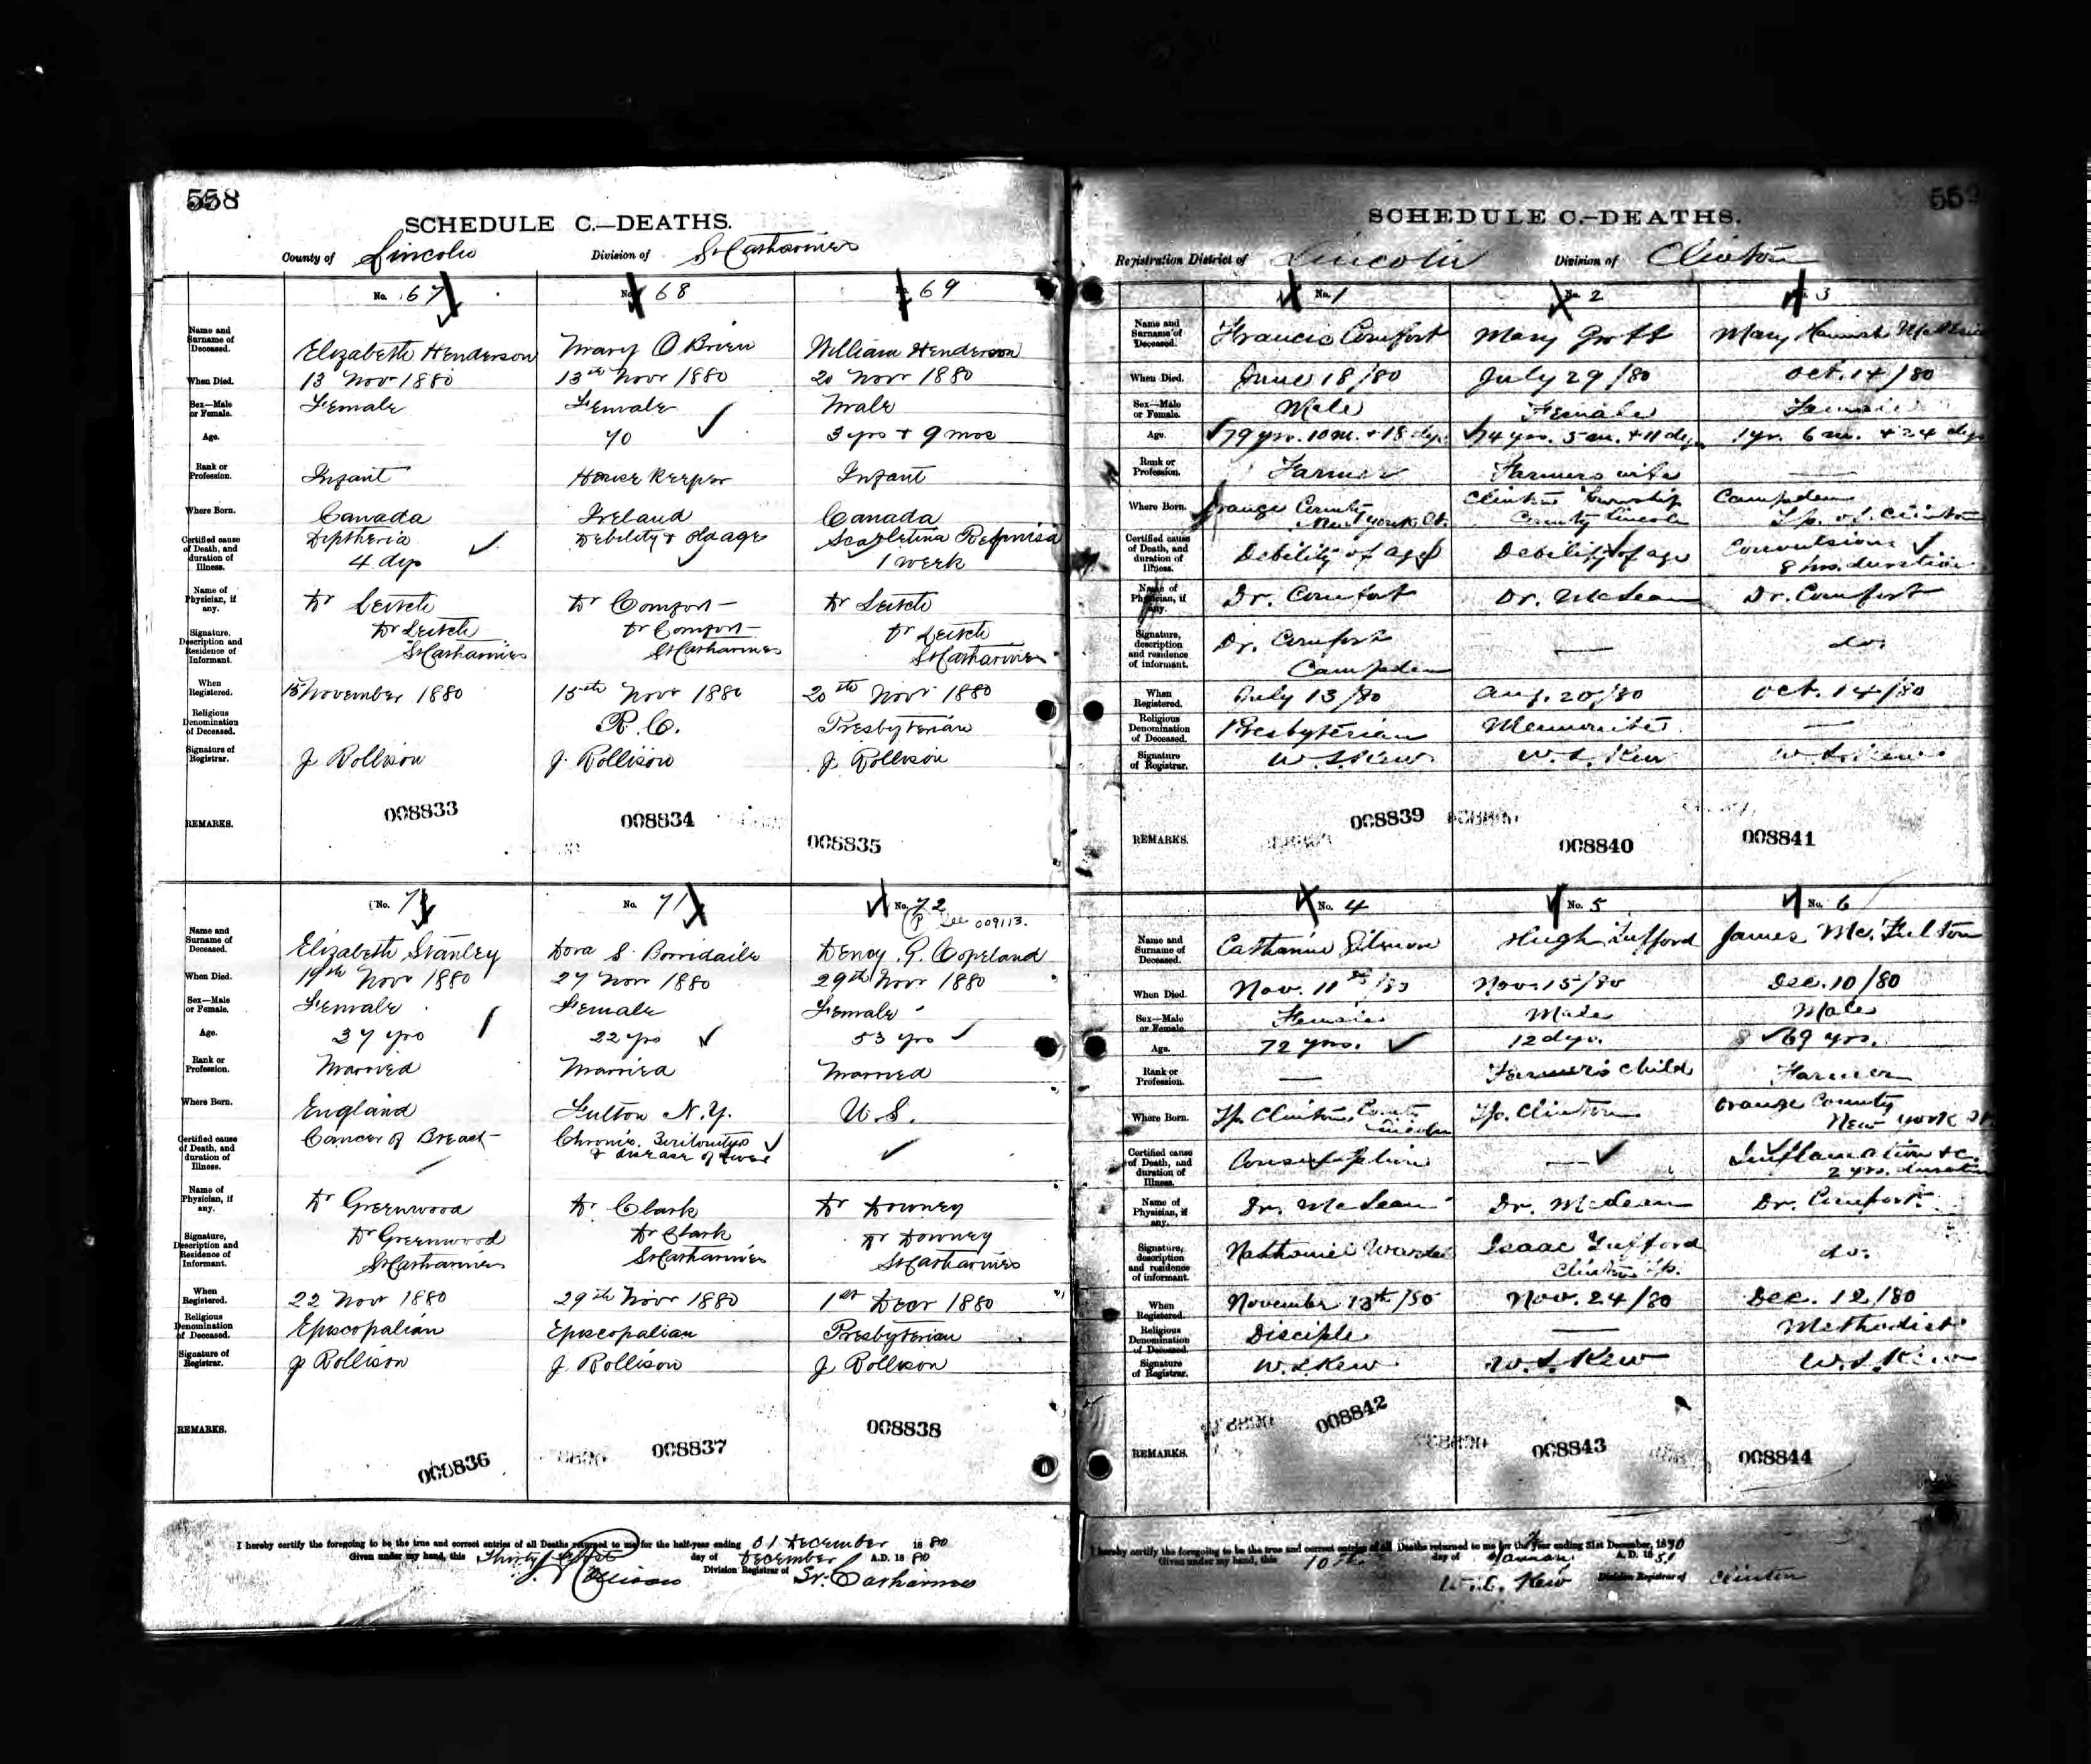 558
SCHEDULE C.—DEATHS.
County of Lincoln Division of St Catharines
No. 67 No. 68 No. 69
Name and Surname of Deceased. Elizabeth Henderson Mary O Brien William Henderson
When Died. 13 Nov 1880 13th Novr 1880 20 Novr 1880
Sex—Male or Female. Female Female Male
Age. 70 3 yrs + 9 mos
Rank or Profession. Infant House Keeper Infant
Where Born. Canada Ireland Canada
Certified cause of Death, and duration of Illness. Diptheria Debility & old age Scarletina
4 dys 1 week
Name of Physician, if any. Dr Leitch Dr Comfort Dr Leitch
Signature, Description and Residence of Informant. Dr Leitch Dr Comfort Dr Leitch
St Catharines St Catharines St Catharines
When Registered. 15 November 1880 15th Novr 1880 20th Novr 1880
Religious Denomination of Deceased. R. C. Presbyterian
Signature of Registrar. J Rollison J. Rollison J Rollison
REMARKS. 008833 008834 008835
No. 71 No. 72
See 009113.
Name and Surname of Deceased. Elizabeth Stanley Dora S. Borridaile G. Copeland
When Died. 19th Novr 1880 27 Novr 1880 29th Novr 1880
Sex—Male or Female. Female Female Female
Age. 37 yrs 22 yrs 53 yrs
Rank or Profession. Married Married Married
Where Born. England Fulton N.Y. U.S.
Certified cause of Death, and duration of Illness. Cancer of Breast Chronic
& disease of
Name of Physician, if any. Dr Greenwood Dr Clark Dr Downey
Signature, Description and Residence of Informant. Dr Greenwood Dr Clark Dr Downey
St Catharines St Catharines St Catharines
When Registered. 22 Novr 1880 29th Novr 1880 1st Decr 1880
Religious Denomination of Deceased. Episcopalian Episcopalian Presbyterian
Signature of Registrar. J Rollison J Rollison J Rollison
REMARKS. 008836 008837 008838
I hereby certify the foregoing to be the true and correct entries of all Deaths returned to me for the half-year ending 31 December 1880
Given under my hand, this Thirty first day of December A.D. 1880
J. Rollison Division Registrar of St. Catharines
559
SCHEDULE C.—DEATHS.
Registration District of Lincoln Division of Clinton
No. 1 No. 2 No. 3
Name and Surname of Deceased. Francis Comfort Mary Grott Mary Hannah
When Died. June 18/80 July 29/80 Oct. 14/80
Sex—Male or Female. Male Female Female
Age. 79 yrs. 10 m. + 18 dys. 74 yrs. 5 m. + 11 dys. 1 yr. 6 m. + 24 dys
Rank or Profession. Farmer Farmers wife —
Where Born. Orange County Clinton Township Campden
New York St. County Lincoln Tp. of Clinton
Certified cause of Death, and duration of Illness. Debility of age Debility of age Convulsions
8 hrs. duration
Name of Physician, if any. Dr. Comfort Dr. McLean Dr. Comfort
Signature, description and residence of informant. Dr. Comfort — do.
Campden
When Registered. July 13/80 Aug. 20/80 Oct. 14/80
Religious Denomination of Deceased. Presbyterian Mennonites —
Signature of Registrar. W. S. Kew W. S. Kew W. S. Kew
REMARKS. 008839 008840 008841
No. 4 No. 5 No. 6
Name and Surname of Deceased. Catharine Hugh Tufford James Mc. Fulton
When Died. Nov. 11th/80 Nov. 15/80 Dec. 10/80
Sex—Male or Female. Female Male Male
Age. 72 yrs. 12 dys. 69 yrs.
Rank or Profession. — Farmer's child Farmer
Where Born. Tp. Clinton, County Lincoln Tp. Clinton Orange County
New York St.
Certified cause of Death, and duration of Illness. Consumption — Inflamation &c.
2 yrs. duration
Name of Physician, if any. Dr. McLean Dr. McLean Dr. Comfort
Signature, description and residence of informant. Nathaniel Isaac Tufford do.
Clinton Tp.
When Registered. November 13th/80 Nov. 24/80 Dec. 12/80
Religious Denomination of Deceased. Disciple — Methodist
Signature of Registrar. W. S. Kew W. S. Kew W. S. Kew
REMARKS. 008842 008843 008844
I hereby certify the foregoing to be the true and correct entries of all Deaths returned to me for the Year ending 31st December, 1880
Given under my hand, this 10th day of January A.D. 1881
W. S. Kew Division Registrar of Clinton